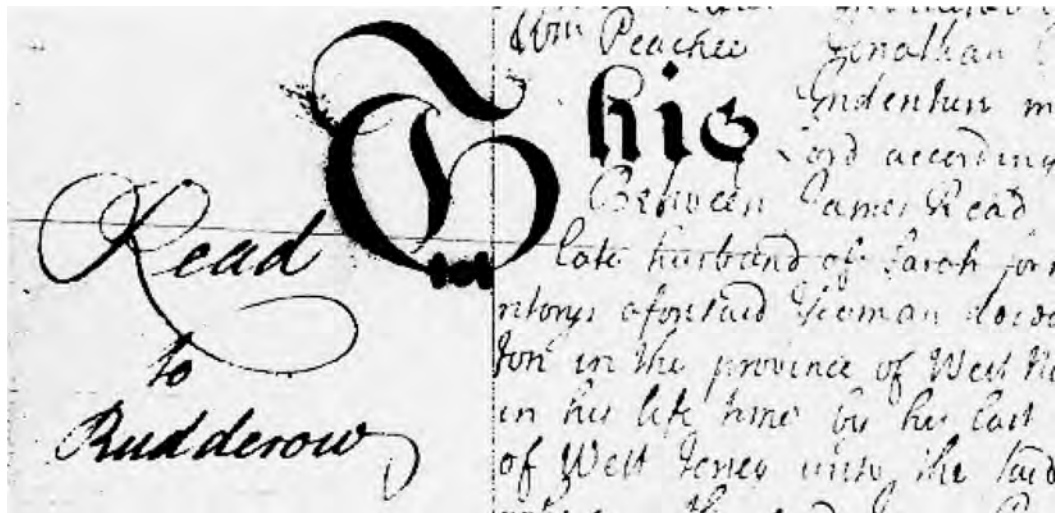 Wm Peachee Jonathan
This Indenture m
Lord according
Between James Read
late husband of Sarah for
ritorys aforesaid Yeoman
ton in the province of West
in his life time by his last
of West Jersey unto the said
Read
to
Rudderow